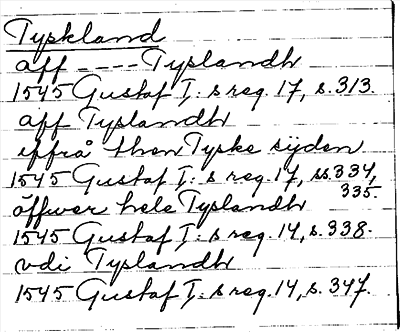 Tyskland
aff ---- Tyslandh
1545 Gustaf I: s reg. 17, s. 313.
aff Tyslandh
iffrå then Tyske sijden
1545 Gustaf I: s reg. 17, ss. 334, 335.
öffwer hele Tyslandh
1545 Gustaf I: s reg. 14, s. 338.
vdi Tyslandh
1545 Gustaf I: s reg. 14, s. 347.